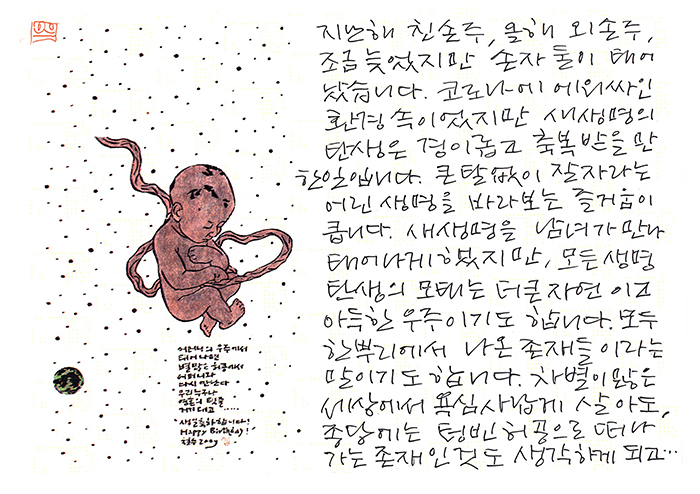 어머니의 우주에서
태어나면
별 많은 허공에서
어머니와
다시 만난다
우리 누구나
영혼의 탯줄
게 대고.....
"생일 축하합니다!
Happy Birthday!"
철수 2009
지난해 친손주, 올해 외손주,
조금 늦었지만 손자 둘이 태어
났습니다. 코로나에 에워싸인
환경 속이었지만 새생명의
탄생은 경이롭고 축복 받을 만
한 일입니다. 큰 탈 없이 잘 자라는
어린 생명을 바라보는 즐거움이
큽니다. 새생명을 남녀가 만나
태어나게 했지만, 모든 생명
탄생의 모태는 더 큰 자연이고
아득한 우주이기도 합니다. 모두
한뿌리에서 나온 존재들이라는
말이기도 합니다. 차별이 많은
세상에서 욕심사납게 살아도,
종당에는 텅빈 허공으로 떠나
가는 존재인 것도 생각하게 되고…